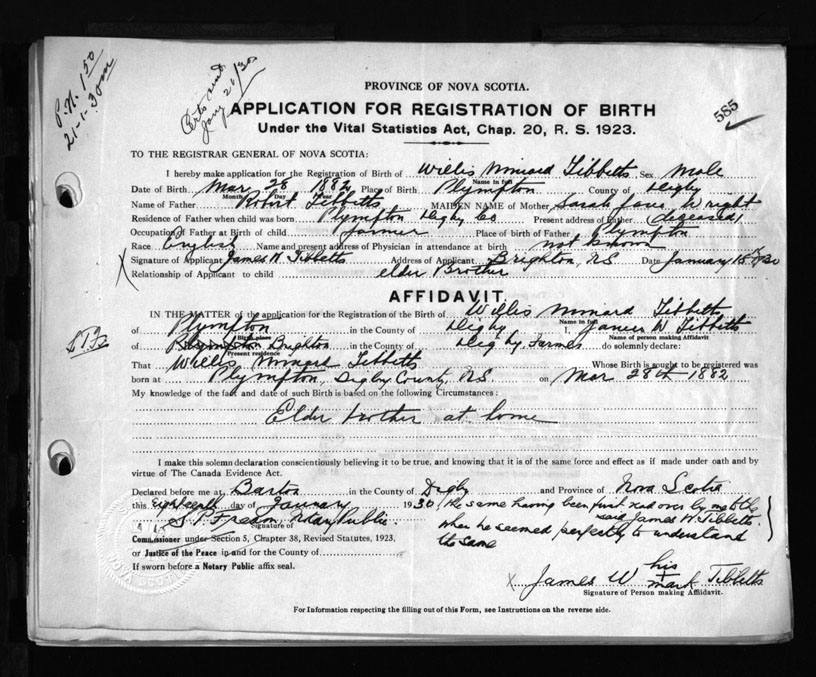 P.N. 1.50
21-1-30
Jany 21/30
585
PROVINCE OF NOVA SCOTIA.
APPLICATION FOR REGISTRATION OF BIRTH
Under the Vital Statistics Act, Chap. 20, R. S. 1923.
TO THE REGISTRAR GENERAL OF NOVA SCOTIA:
I hereby make application for the Registration of Birth of Willis Minard Tibbetts Sex Male
Name in full
Date of Birth Mar 28 1882 Place of Birth Plympton County of Digby
Month Day Year
Name of Father Robert Tibbetts MAIDEN NAME of Mother Sarah Jane Wright
Residence of Father when child was born Plympton Digby Co Present address of Father (deceased)
Occupation of Father at Birth of child farmer Place of birth of Father Plympton
Race English Name and present address of Physician in attendance at birth not known
Signature of Applicant James W Tibbetts Address of Applicant Brighton, N.S. Date January 18th/30
X
Relationship of Applicant to child elder Brother
AFFIDAVIT.
IN THE MATTER of the application for the Registration of the Birth of Willis Minard Tibbetts
Name in full
of Plympton in the County of Digby I, James W Tibbetts
Birth place
Name of person making Affidavit
of Brighton in the County of Digby, Farmer do solemnly declare:
Present residence
That Willis Minard Tibbetts Whose Birth is sought to be registered was
born at Plympton, Digby County, N.S. on Mar 28th 1882
My knowledge of the fact and date of such Birth is based on the following Circumstances:
Elder brother at home
I make this solemn declaration conscientiously believing it to be true, and knowing that it is of the same force and effect as if made under oath and by
virtue of The Canada Evidence Act.
Declared before me at Barton in the County of Digby and Province of Nova Scotia
this eighteenth day of January 1930 (the same having been first read over by me to the
said James W. Tibbetts.
Notary Public
when he seemed perfectly to understand
the same
Signature of
Commissioner under Section 5, Chapter 38, Revised Statutes, 1923,
or Justice of the Peace in and for the County of
If sworn before a Notary Public affix seal.
his
X James W + Tibbetts
mark
Signature of Person making Affidavit.
For Information respecting the filling out of this Form, see Instructions on the reverse side.